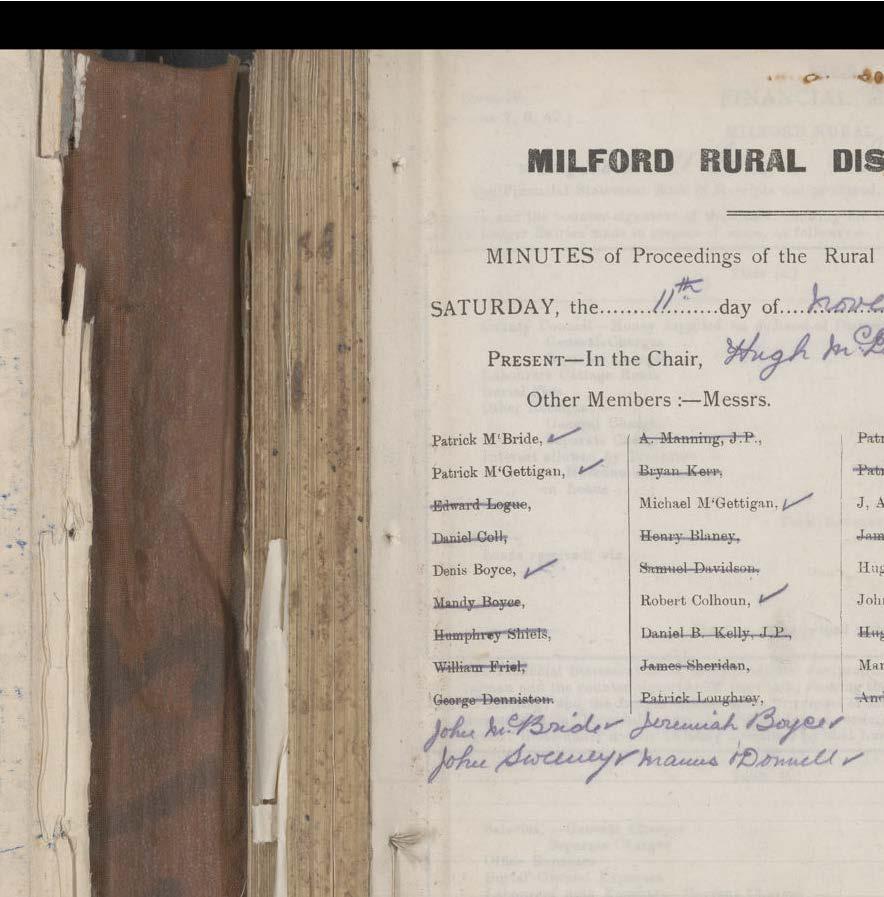 MILFORD RURAL DIS
MINUTES of Proceedings of the Rural
SATURDAY, the.........11th.........day of....Nove
PRESENT—In the Chair, Hugh McL
Other Members :—Messrs.
Patrick M'Bride, ✓ A. Manning, J.P., Patr
Patrick M'Gettigan, ✓ Bryan Kerr, Patr
Edward Logue, Michael M'Gettigan, ✓ J, A
Daniel Coll, Henry Blaney, Jam
Denis Boyce, ✓ Samuel Davidson, Hug
Mandy Boyce, Robert Colhoun, ✓ John
Humphrey Shiels, Daniel B. Kelly, J.P., Hug
William Friel, James Sheridan, Mar
George Denniston. Patrick Loughrey, And
John McBride ✓ Jeremiah Boyce ✓
John Sweeney ✓ Manus O'Donnell ✓